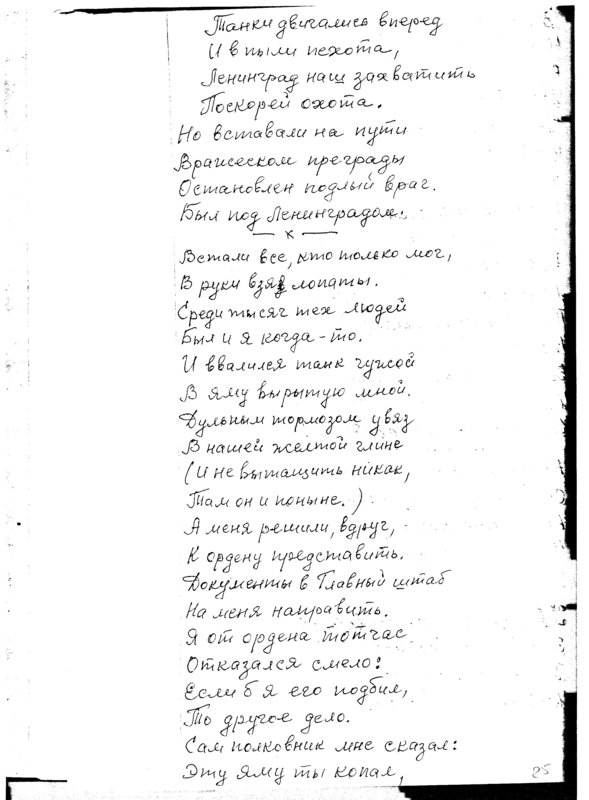 Танки двигались вперед
И в пыли пехота,
Ленинград наш захватить
Поскорей охота.
Но вставали на пути
Вражеском преграды
Остановлен подлый враг.
Был под Ленинградом.
— x —
Встали все, кто только мог,
В руки взяв лопаты.
Среди тысяч тех людей
Был и я когда-то.
И ввалился танк чужой
В яму вырытую мной.
Дульным тормозом увяз
В нашей желтой глине
(И не вытащить никак,
Там он и поныне.)
А меня решили, вдруг,
К ордену представить.
Документы в Главный штаб
На меня направить.
Я от ордена тотчас
Отказался смело:
Если б я его подбил,
То другое дело.
Сам полковник мне сказал:
Эту яму ты копал,
25